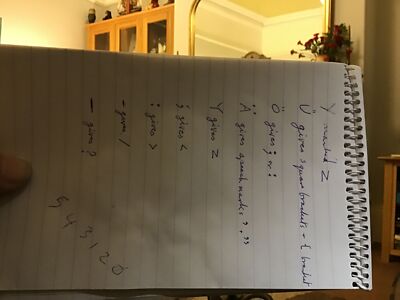 Y marked Z
Ü gives square brackets - & bracket
Ö gives ; or :
Ä gives speech marks ' , "
Y gives Z
; gives <
: gives >
- gives /
_ gives ?
4 3 1 2 0